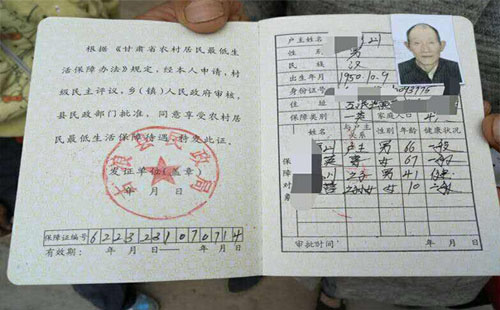 根据《甘肃省农村居民最低生
活保障办法》规定，经本人申请，村
级民主评议，乡（镇）人民政府审核，
县民政部门批准，同意享受农村居
民最低生活保障待遇，特发此证。
县民政局
发证单位（盖章）
年 月 日
保障证编号 6223231070714
有效期： 年 月 日— 年 月 日
户主姓名
性 别 男
民 族 汉
出生年月 1950.10.9
身份证号
住 址
保障类别 一类 家庭人口 4
保障对象
姓名 与户主关系 性别 年龄 健康状况
户主 男 66 一般
妻 女 67 一般
之子 男 41
女 10 一般
审批时间 年 月 日